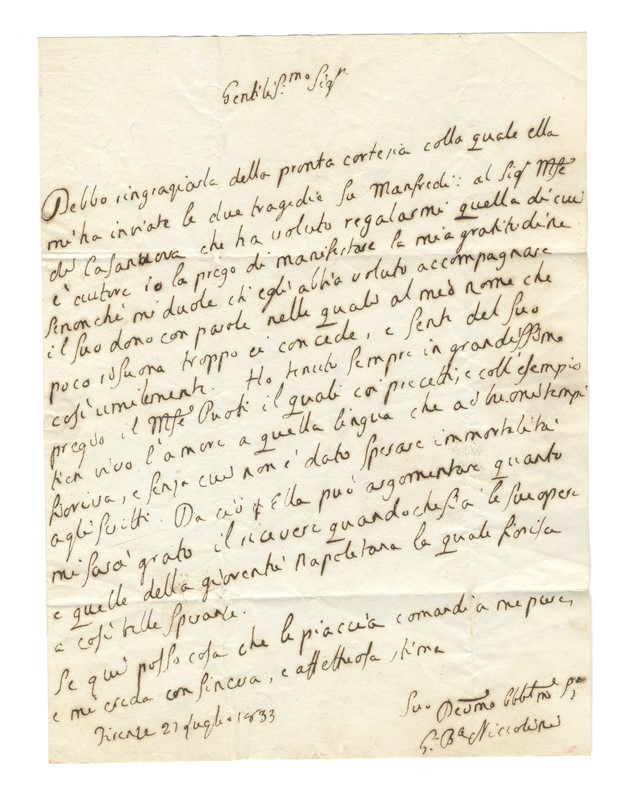 Gentilis.mo Sigr.
Debbo ringraziarla della pronta cortesia colla quale ella
mi ha inviate le due tragedie su Manfredi: al Sigr Mse
di Casanova che ha voluto regalarmi quella di cui
è autore io la prego di manifestare la mia gratitudine
senonché mi duole ch'egli abbia voluto accompagnare
il suo dono con parole nelle quali al meo nome che
poco risuona troppo ei concede, e senti del suo
così umilmente. Ho tenuto sempre in grandissimo
pregio il Mse Puoti il quale coi precetti, e coll'esempio
tien vivo l'amore a quella lingua che ai buoni tempi
fioriva, e senza cui non è dato sperare immortalità
agli scritti. Da ciò Ella può argomentare quanto
mi sarà grato il ricevere quandochesia le sue opere
e quelle della gioventù napoletana la quale fiorisce
a così belle speranze.
Se qui posso cosa che le piaccia comandi a me pure,
e mi creda con sincera, e affettuosa stima
Firenze 21 Luglio 1833
Suo Devmo Obbtmo
G. Ba Niccolini